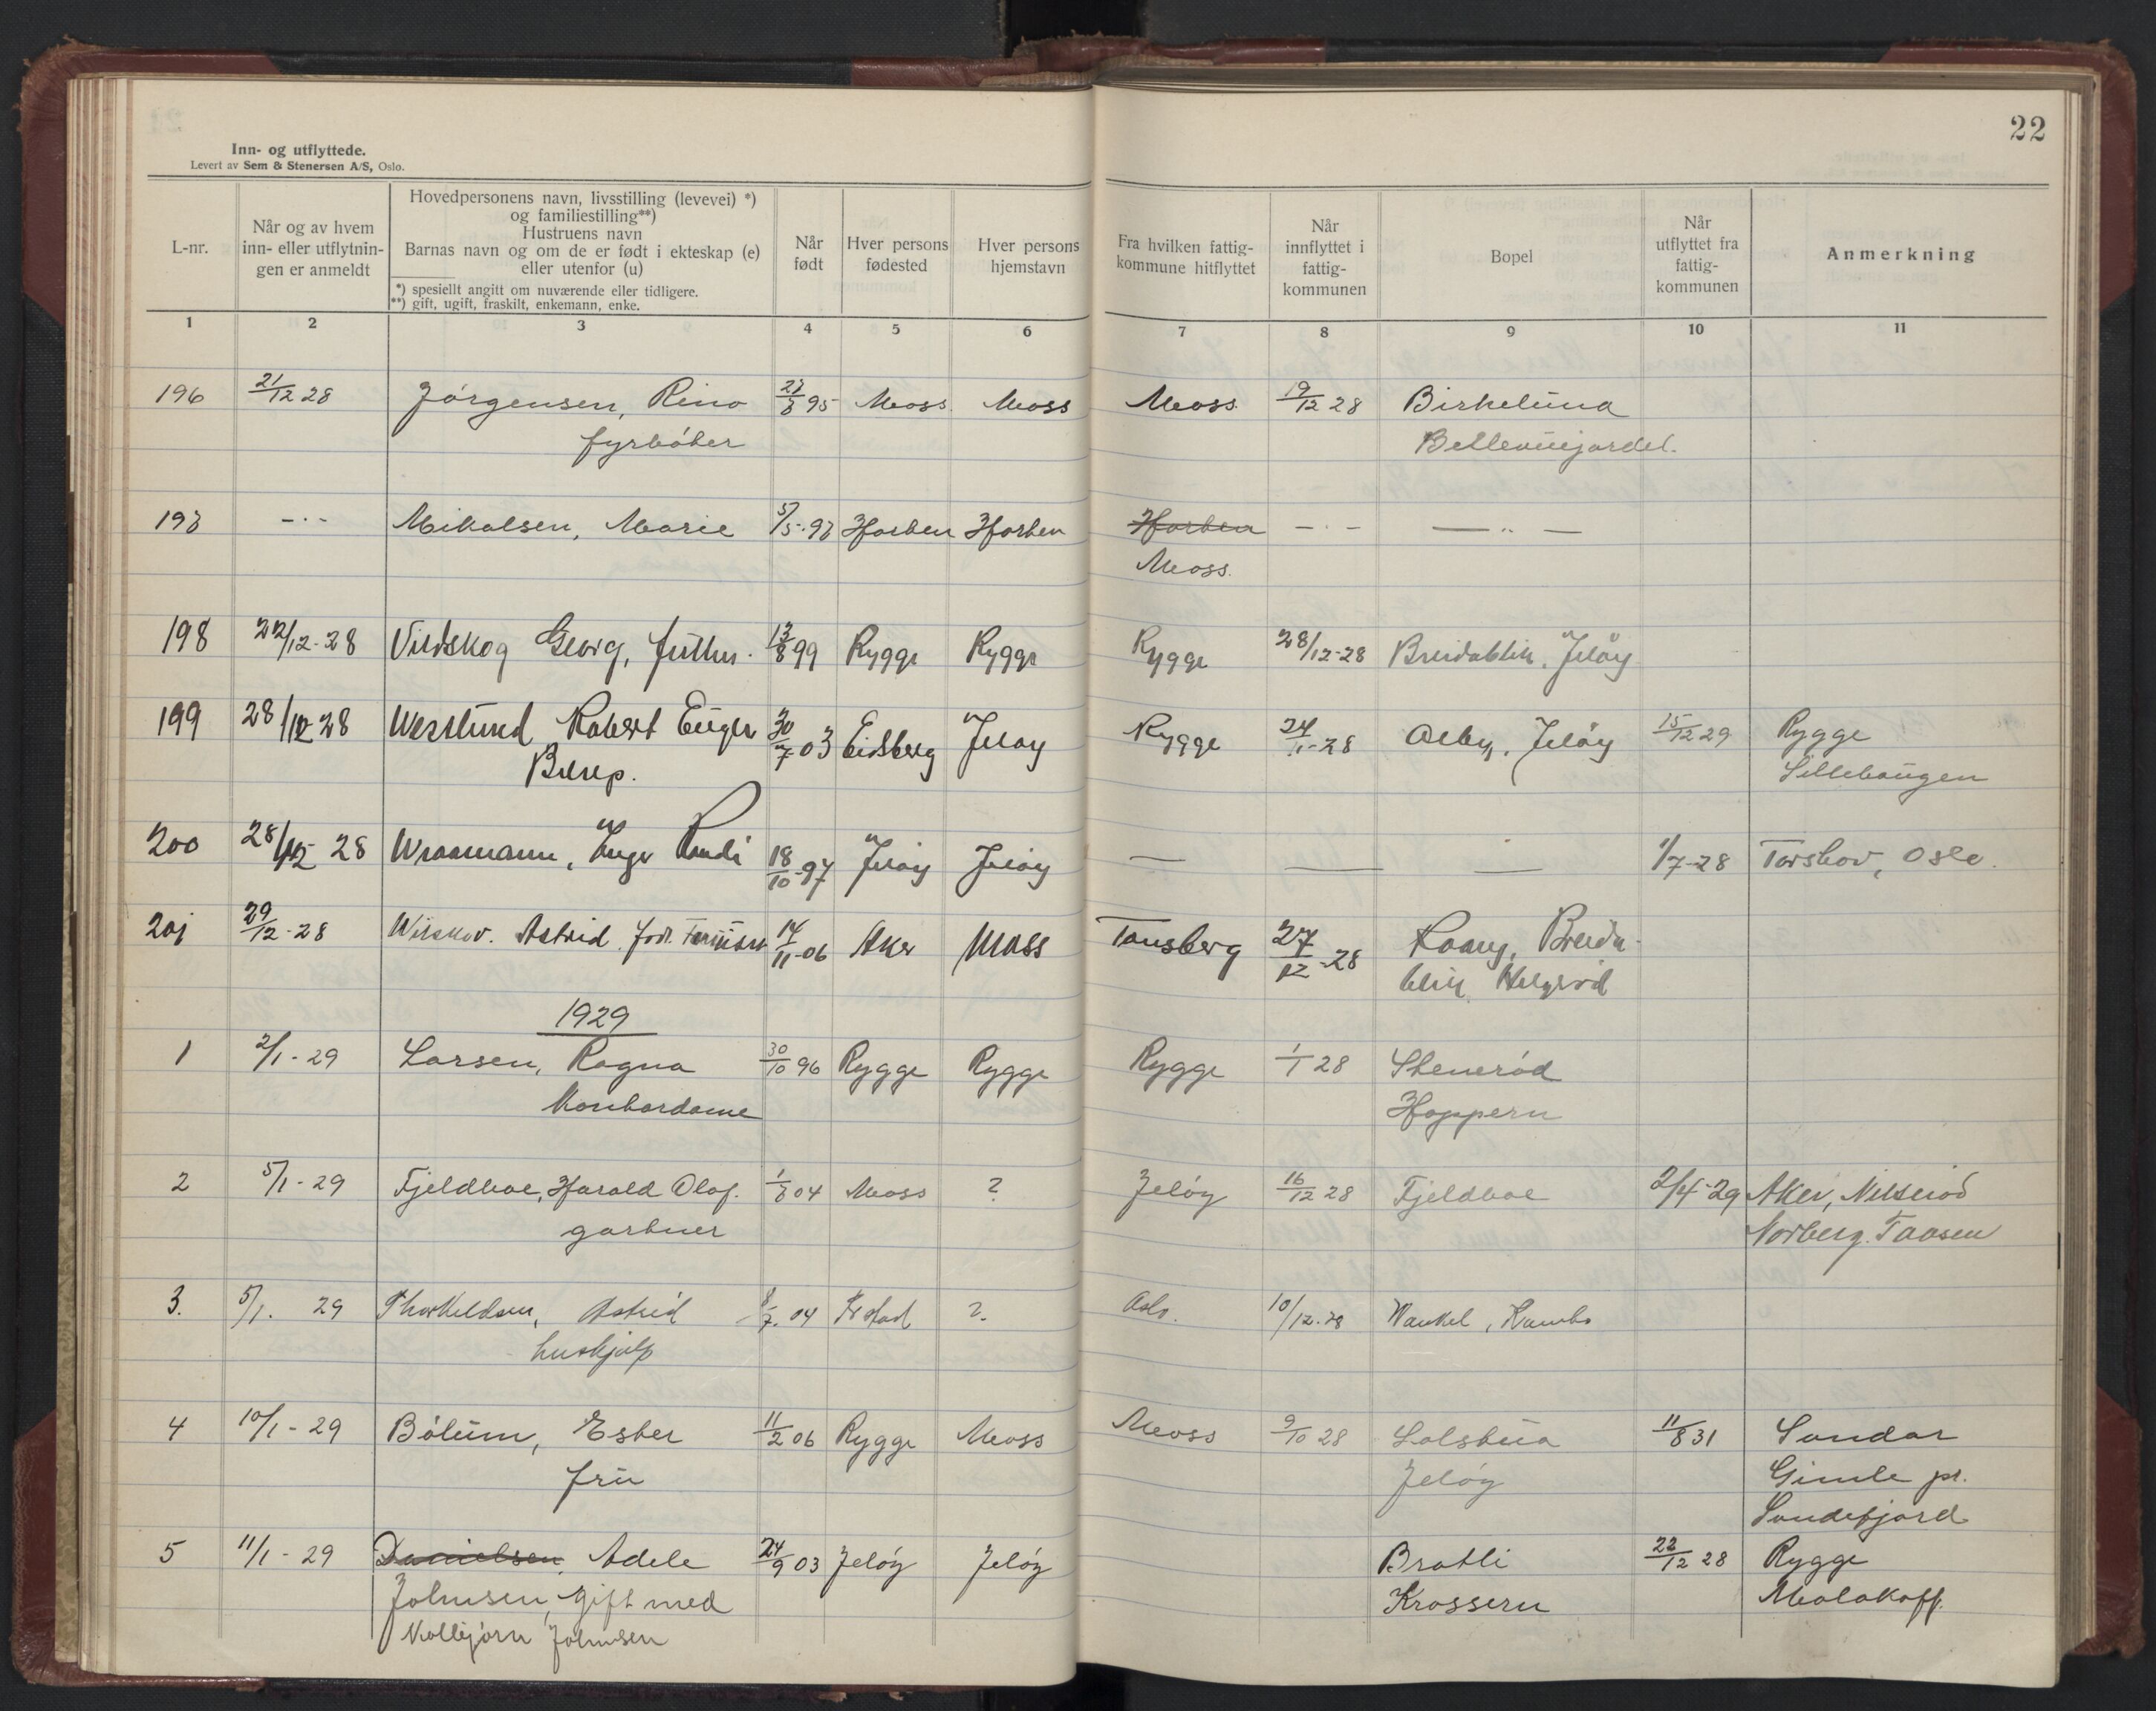 22
Inn- og utflyttede.
Levert av Sem & Stenersen A/S, Oslo.
L-nr.
Når og av hvem
inn- eller utflytnin-
gen er anmeldt
Hovedpersonens navn, livsstilling (levevei) *)
og familiestilling**)
Hustruens navn
Barnas navn og om de er født i ekteskap (e)
eller utenfor (u)
*) spesiellt angitt om nuværende eller tidligere.
**) gift, ugift, fraskilt, enkemann, enke.
Når
født
Hver persons
fødested
Hver persons
hjemstavn
Fra hvilken fattig-
kommune hitflyttet
Når
innflyttet i
fattig-
kommunen
Bopel
Når
utflyttet fra
fattig-
kommunen
Anmerkning
1 2 3 4 5 6 7 8 9 10 11
196 21/12 28 Jörgensen, Rino 95 Moss Moss Moss 19/12 28 Birkelund
fyrböter
197 -..- Mikalsen, Marie Moss
198 22/12-28 Georg, 99 Rygge Rygge Rygge 28/12-28 Breidablik, Jelöy
199 28/12 28 Westlund Robert 30/7 03 Eidsberg Jeløy Rygge 28 Jeløy 15/12 29 Rygge
200 28/12 28 Wraamann, Inger Randi 18/10-97 Jeløy Jeløy — — — 1/7-28 Torshov, Oslo.
201 29/12-28 Astrid 14/11-06 Aker Moss Tønsberg 27/12-28 Breida-
blik
1929
1 2/1-29 Larsen, Ragna 30/10 96 Rygge Rygge Rygge 1/1 28 Stenerød
Kontordame Hoppern
2 5/1-29 Fjeldboe, Harald Olaf. 04 Moss ? Jeløy 16/12 28 Fjeldboe 2/4-29 Aker,
gartner Norberg. Taasen
3. 5/1. 29 Thorkildsen, Astrid 04 ? Oslo. 10/12.28 Kambo
hushjelp
4 10/1-29 Bölum, Ester 11/2 06 Rygge Moss Moss 9/10 28 Solsbua 11/8 31 Sandar
fru Jeløy Gimle pr.
Sandefjord
5 11/1-29 Danielsen, Adele 24/9 03 Jeløy Jeløy Bratli 22/12 28 Rygge
Johnsen, gift med Krossern Malakoff.
Kolbjørn Johnsen